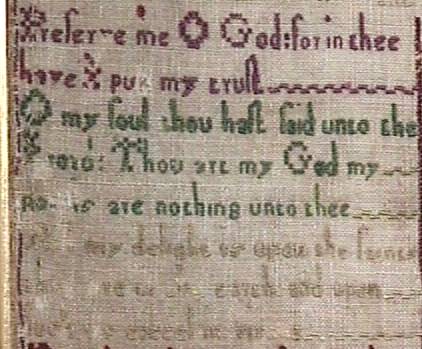 Preſerve me O God:for in thee
have I put my truſt
O my ſoul thou haſt ſaid unto the
Lord: Thou art my God my
are nothing unto thee
my delight is upon the ſaints
earth and upon